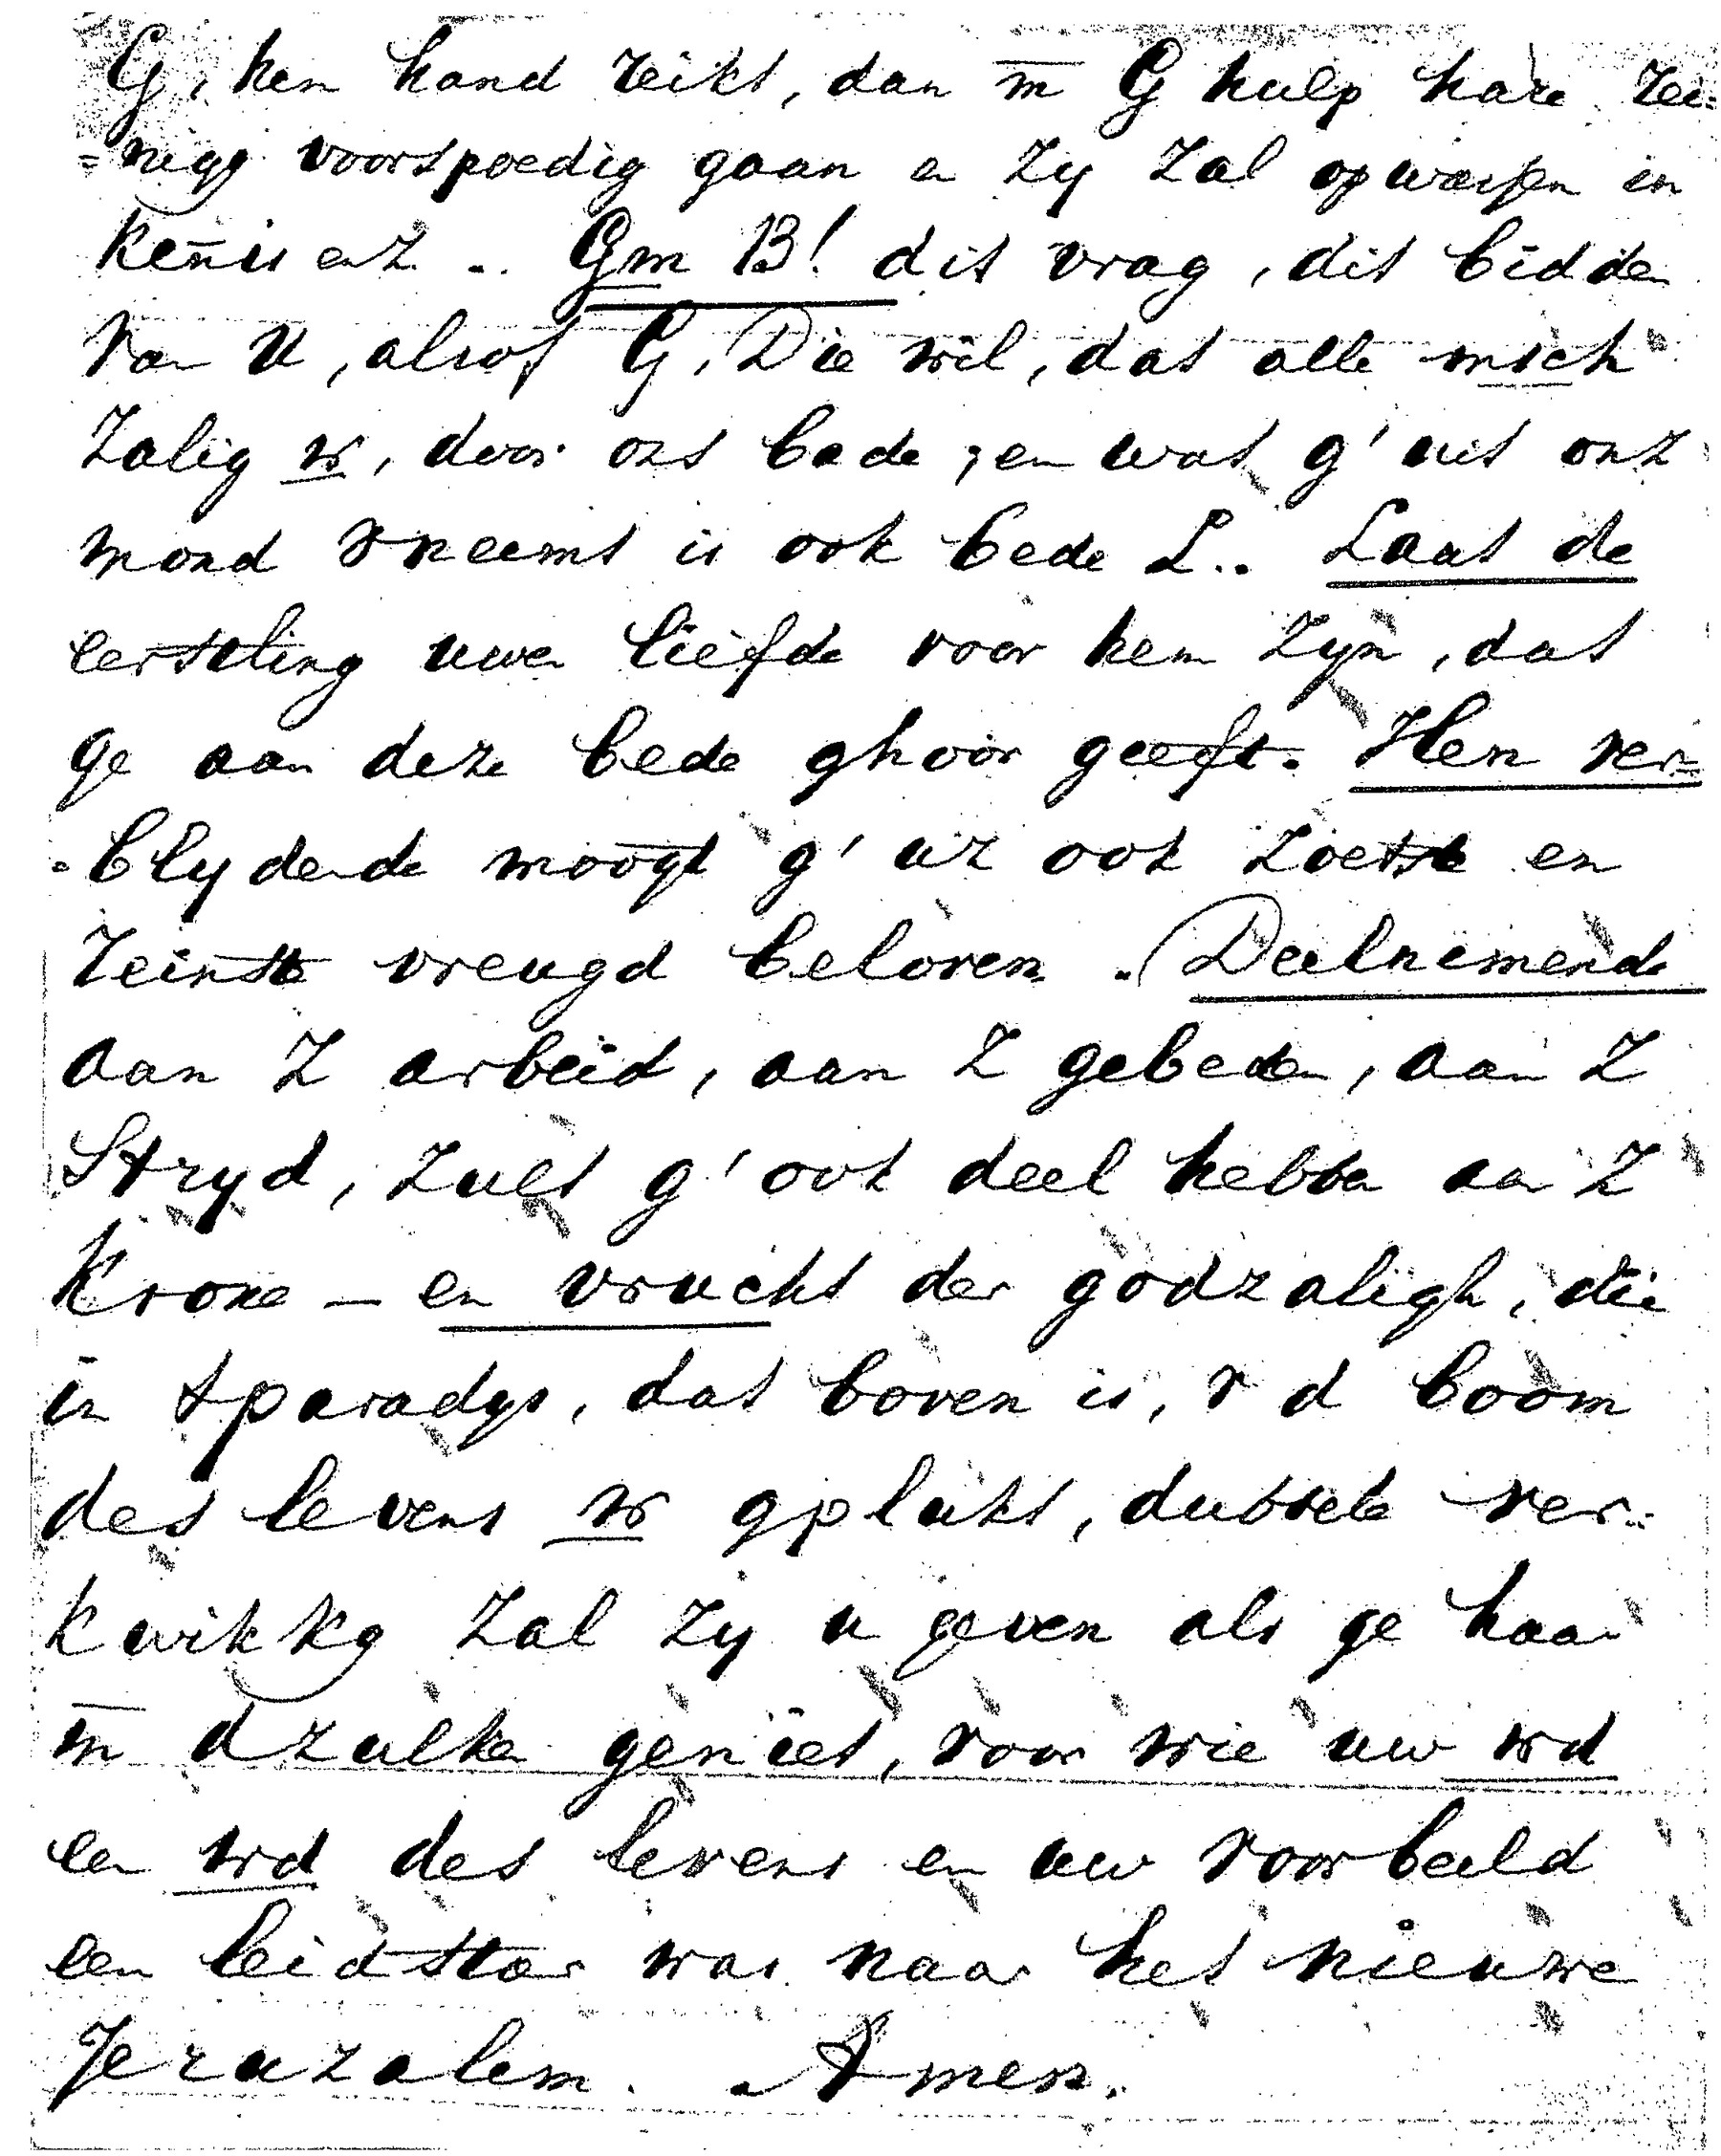 G, hem hand reikt, dan m̅ G hulp hare rei-
=nigg voorspoedig gaan en zy zal opwassen in
kennis enz .. Gm B! dit vrag, dit bidden
van U, alsof G, Die wil, dat alle msch
zalig w, door ons bade ; en wat g' uit onz
mond vneemt is ook bede L.. Laat de
eersteling uwer liefde voor hem zyn, dat
ge aan deze bede ghoor geeft. Hen ver=
-blydende moogt g' uz ook zoetste en
reinste vreugd beloven. Deelnemende
aan Z arbeid, aan Z gebeden, aan Z
Stryd, zult g' ook deel hebben aan Z
Krone — en vrucht der godzaligh, die
in t paradys, dat boven is, v d boom
des levens w gplukt, dubbele ver-
kwikkg zal zy u geven als ge haar
m̅ dzulken geniet, voor wie uw wd
een wd des levens en uw voorbeeld
een leidstar was naar het nieuwe
Jeruzalem. Amen.